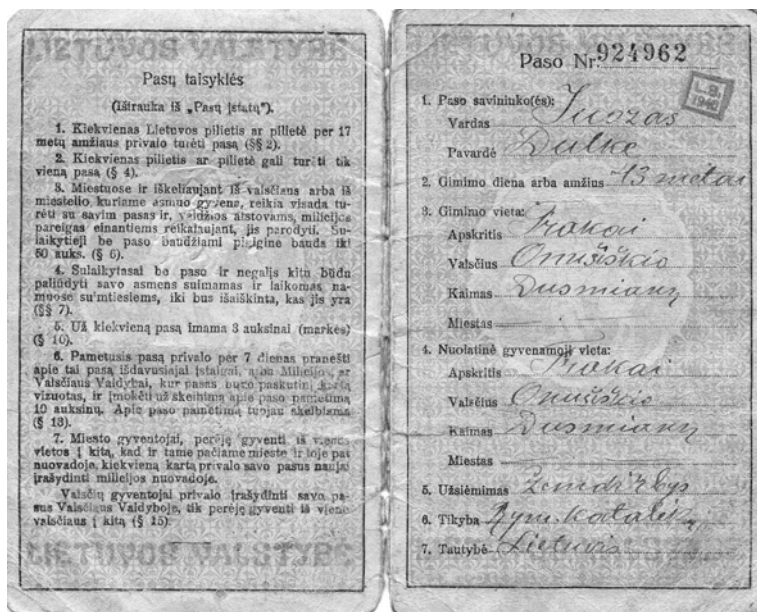 Pasų taisyklės
(Ištrauka iš „Pasų Įstatų").
1. Kiekvienas Lietuvos pilietis ar pilietė per 17
metų amžiaus privalo turėti pasą (§§ 2).
2. Kiekvienas pilietis ar pilietė gali turėti tik
vieną pasą (§ 4).
3. Miestuose ir iškeliaujant iš valsčiaus arba iš
miestelio, kuriame asmuo gyvena, reikia visada tu-
rėti su savim pasas ir, valdžios atstovams, milicijos
pareigas einantiems reikalaujant, jis parodyti. Su-
laikytieji be paso baudžiami pinigine bauda iki
50 auks. (§ 6).
4. Sulaikytasai be paso ir negalįs kitu būdu
paliudyti savo asmens suimamas ir laikomas na-
muose suimtiesiems, iki bus išaiškinta, kas jis yra
(§§ 7).
5. Už kiekvieną pasą imama 3 auksinai (markės)
(§ 10).
6. Pametusis pasą privalo per 7 dienas pranešti
apie tai pasą išdavusiajai įstaigai, arba Milicijos, ar
Valsčiaus Valdybai, kur pasas buvo paskutinį kartą
vizuotas, ir įmokėti už skelbimą apie paso pametimą
10 auksinų. Apie paso pametimą tuojau skelbiama
(§ 13).
7. Miesto gyventojai, perėję gyventi iš vienos
vietos į kitą, kad ir tame pačiame mieste ir toje pat
nuovadoje, kiekvieną kartą privalo savo pasus naujai
įrašydinti milicijos nuovadoje.
Valsčių gyventojai privalo įrašydinti savo pa-
sus Valsčiaus Valdyboje, tik perėję gyventi iš vieno
valsčiaus į kitą (§ 15).
Paso Nr. 924962
1. Paso savininko(ės):
Vardas Juozas
Pavardė Dulkė
2. Gimimo diena arba amžius 43 metai
3. Gimimo vieta:
Apskritis Trakai
Valsčius Onuškio
Kaimas Dusmianų
Miestas
4. Nuolatinė gyvenamoji vieta:
Apskritis Trakai
Valsčius Onuškio
Kaimas Dusmianų
Miestas
5. Užsiėmimas Žemdirbys
6. Tikyba Rym. Katalikų
7. Tautybė Lietuvis